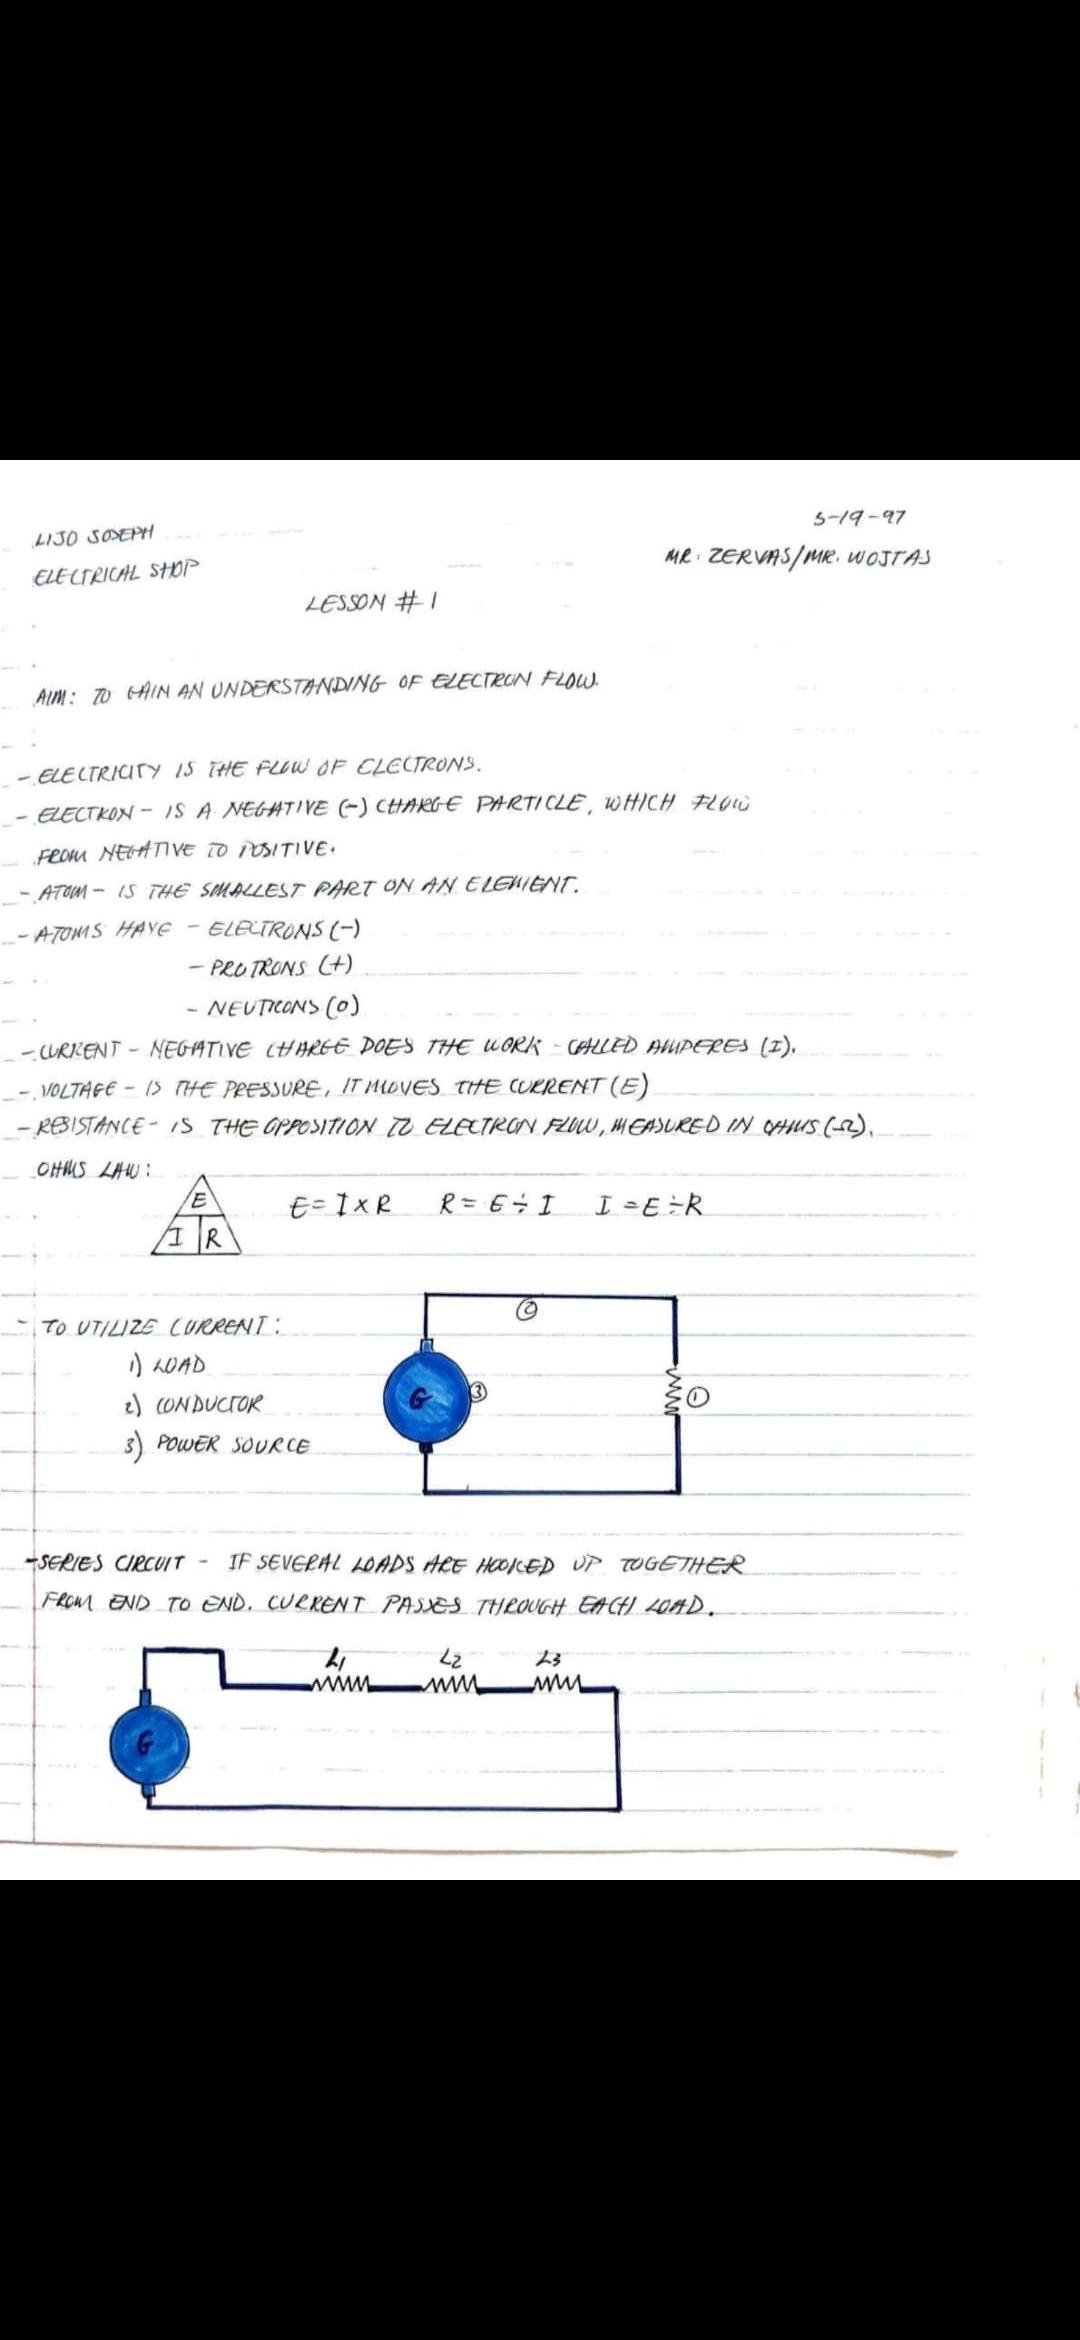 LIJO JOSEPH
5-19-97
ELECTRICAL SHOP
MR. ZERVAS/MR. WOJTAS
LESSON # 1
AIM: TO GAIN AN UNDERSTANDING OF ELECTRON FLOW.
- ELECTRICITY IS THE FLOW OF ELECTRONS.
- ELECTRON - IS A NEGATIVE (-) CHARGE PARTICLE, WHICH FLOW
FROM NEGATIVE TO POSITIVE.
- ATOM - IS THE SMALLEST PART ON AN ELEMENT.
- ATOMS HAVE - ELECTRONS (-)
- PROTRONS (+)
- NEUTRONS (O)
- CURRENT - NEGATIVE CHARGE DOES THE WORK - CALLED AMPERES (I).
- VOLTAGE - IS THE PRESSURE, IT MOVES THE CURRENT (E)
- RESISTANCE - IS THE OPPOSITION TO ELECTRON FLOW, MEASURED IN OHMS (Ω).
OHMS LAW:
E
I R
E = I x R R = E ÷ I I = E ÷ R
- TO UTILIZE CURRENT:
1) LOAD
2) CONDUCTOR
3) POWER SOURCE
②
G
③
①
- SERIES CIRCUIT - IF SEVERAL LOADS ARE HOOKED UP TOGETHER
FROM END TO END. CURRENT PASSES THROUGH EACH LOAD.
L1 L2 L3
G